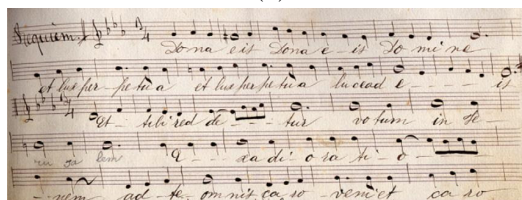 Requiem. Dona eis Dona e - is Do mi ne
et lux per - pe tua et lux per pe tua lucead e - - - is
Et - tibi red de - - - - tur votum in Je -
ru sa lem E - - xa di o ra ti - o -
- nem ad - te omnis ca ro - veniet ca ro